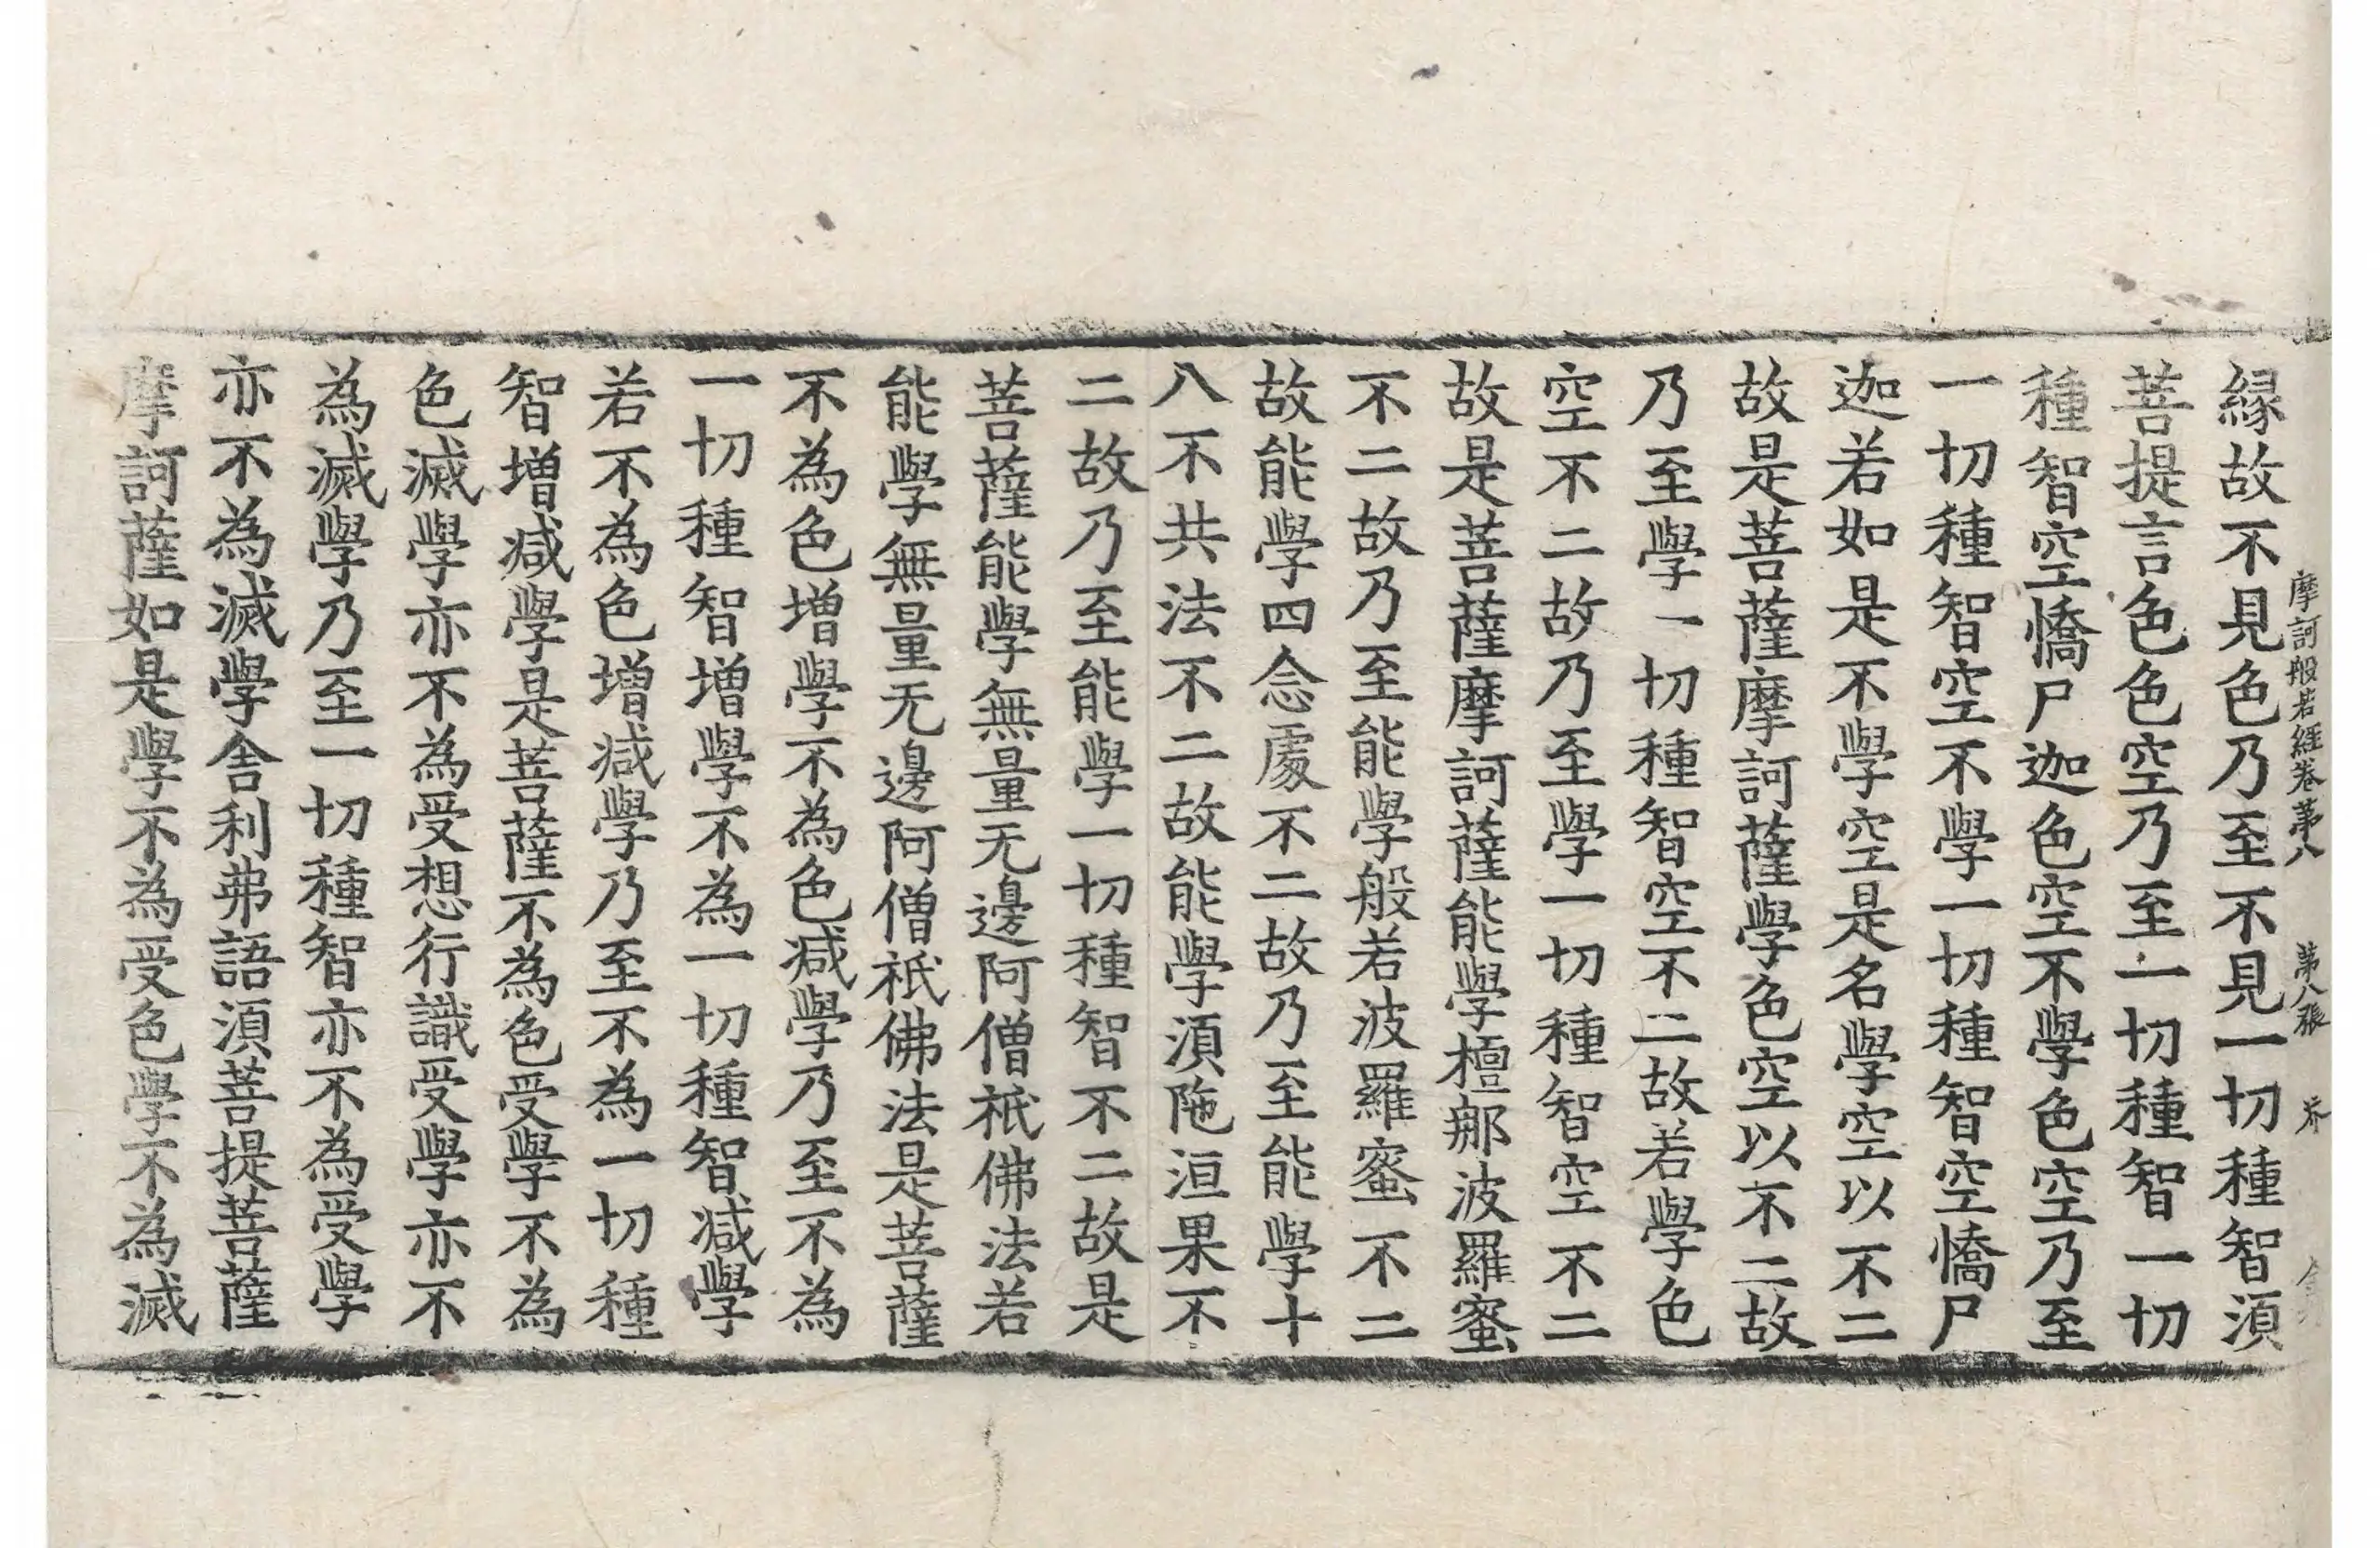 摩訶般若經卷第八　第八張　芥
緣故不見色乃至不見一切種智須
菩提言色色空乃至一切種智一切
種智空憍尸迦色空不學色空乃至
一切種智空不學一切種智空憍尸
迦若如是不學空是名學空以不二
故是菩薩摩訶薩學色空以不二故
乃至學一切種智空不二故若學色
空不二故乃至學一切種智空不二
故是菩薩摩訶薩能學檀那波羅蜜
不二故乃至能學般若波羅蜜不二
故能學四念處不二故乃至能學十
八不共法不二故能學須陁洹果不
二故乃至能學一切種智不二故是
菩薩能學無量无邊阿僧祇佛法若
能學無量无邊阿僧祇佛法是菩薩
不為色增學不為色減學乃至不為
一切種智增學不為一切種智減學
若不為色增減學乃至不為一切種
智增減學是菩薩不為色受學不為
色滅學亦不為受想行識受學亦不
為滅學乃至一切種智亦不為受學
亦不為滅學舍利弗語須菩提菩薩
摩訶薩如是學不為受色學不為滅